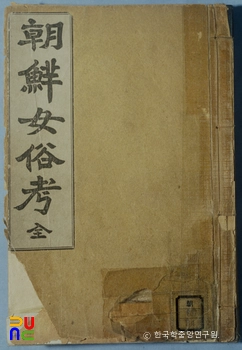 朝鮮女俗考 全
ⓒ 한국학중앙연구원